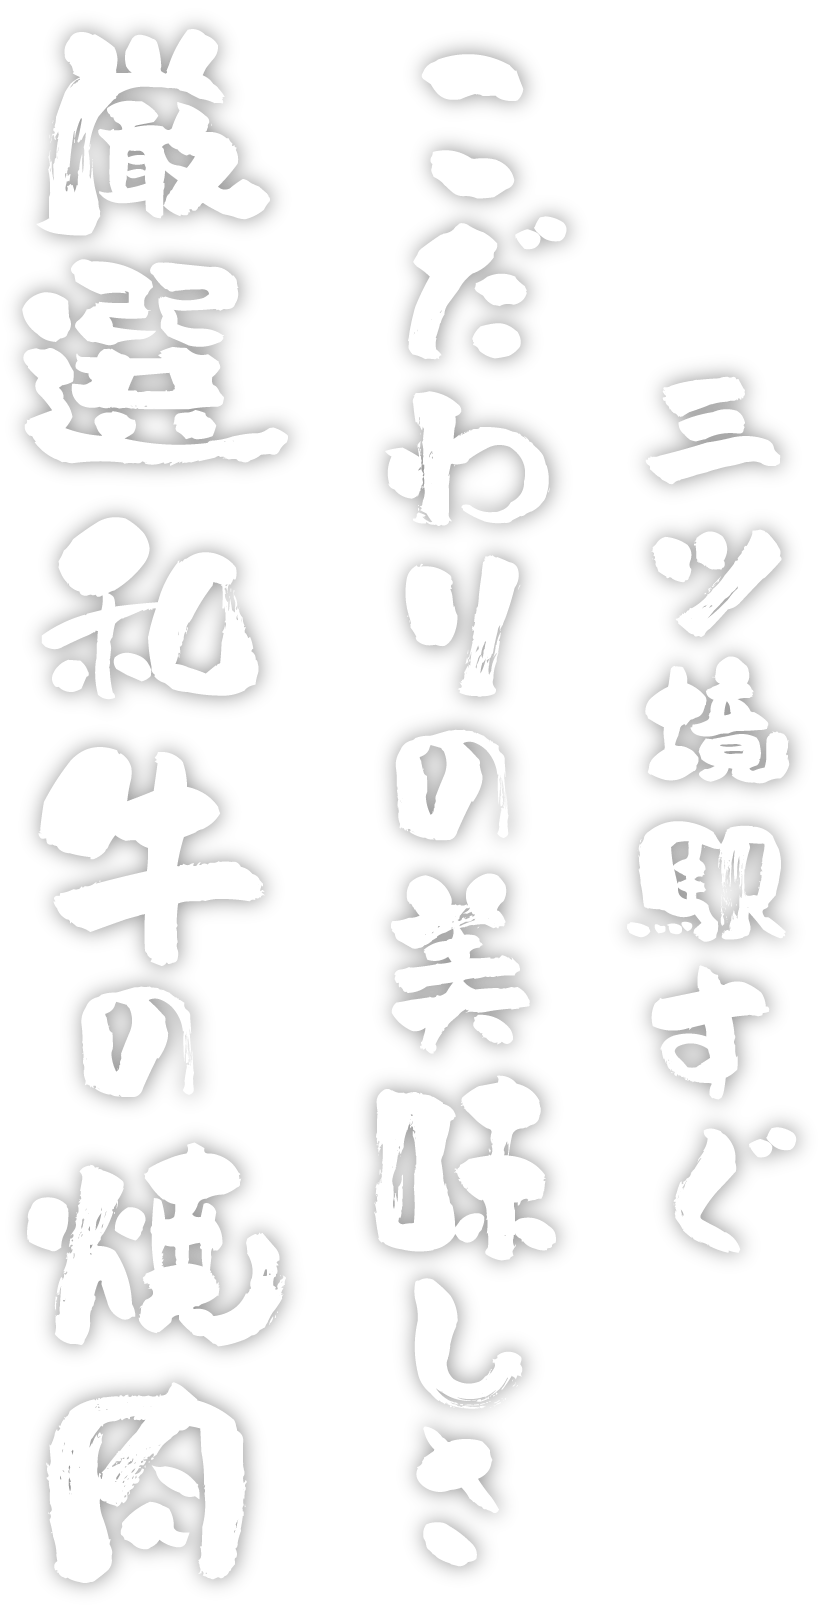 三ツ境駅すぐ
こだわりの美味しさ
厳選和牛の焼肉